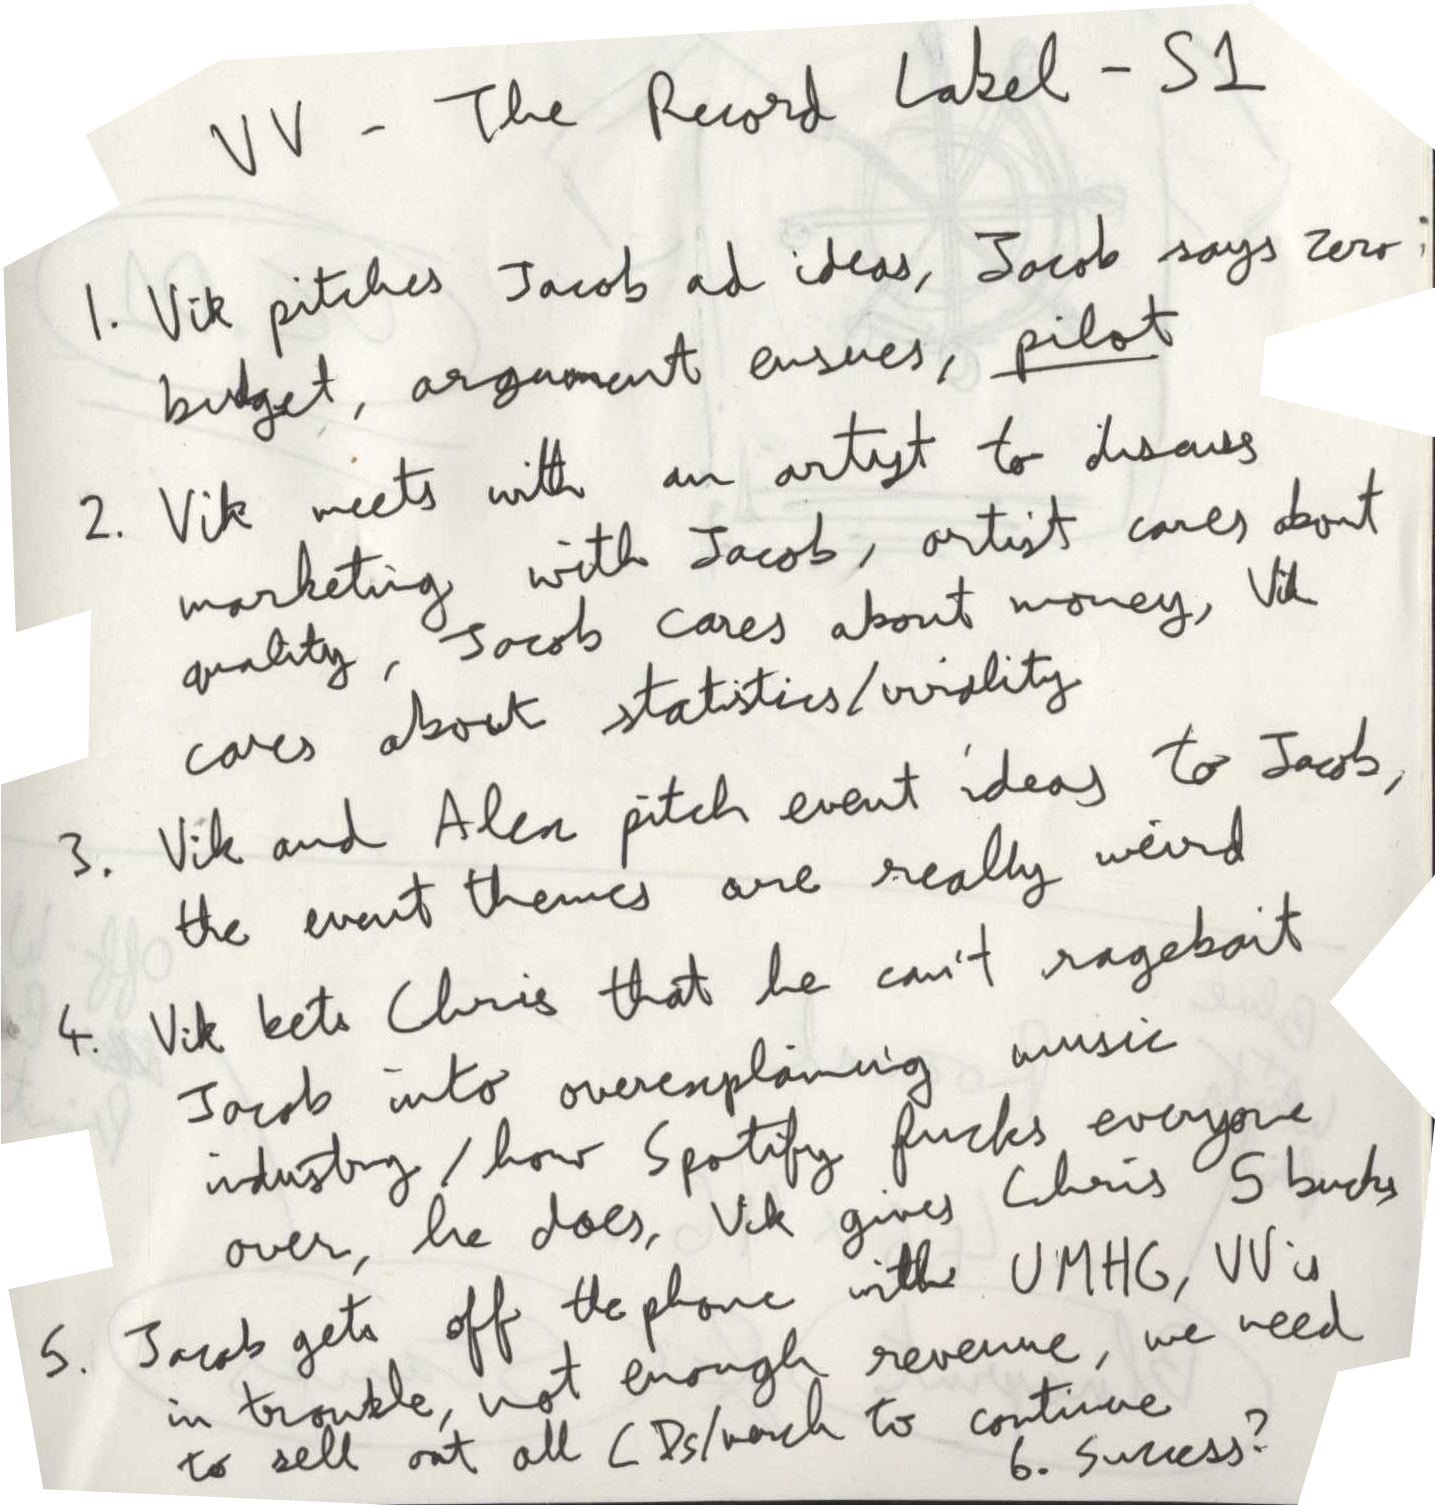 VV - The Record Label - S1
1. Vik pitches Jacob ad ideas, Jacob says zero
budget, argument ensues, pilot
2. Vik meets with an artist to discuss
marketing with Jacob, artist cares about
quality, Jacob cares about money, Vik
cares about statistics/virality
3. Vik and Alex pitch event ideas to Jacob,
the event themes are really weird
4. Vik bets Chris that he can't ragebait
Jacob into overexplaining music
industry/how Spotify fucks everyone
over, he does, Vik gives Chris 5 bucks
5. Jacob gets off the phone with UMHG, VV is
in trouble, not enough revenue, we need
to sell out all CDs/merch to continue
6. Success?